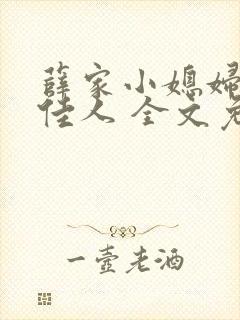 薛家小媳妇
佳人 全文免
一壶老酒